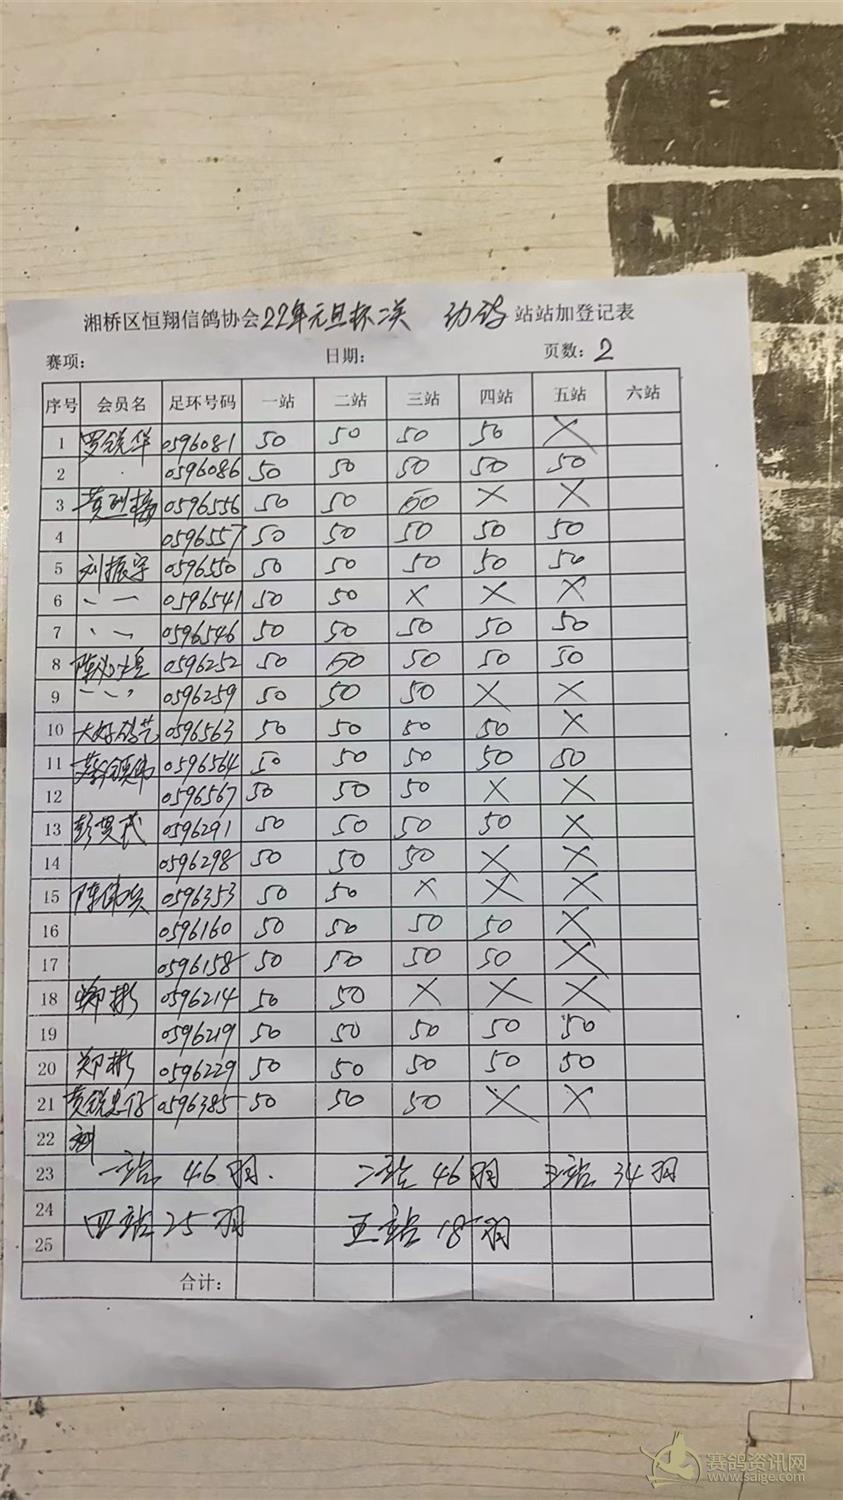 湘桥区恒翔信鸽协会22年元旦杯二关 幼鸽 站站加登记表
赛项: 日期: 页数: 2
序号 会员名 足环号码 一站 二站 三站 四站 五站 六站
1 罗锐华 0596081 50 50 50 50 X
2 0596086 50 50 50 50 50
3 0596556 50 50 50 X X
4 0596557 50 50 50 50 50
5 刘振宇 0596550 50 50 50 50 50
6 0596541 50 50 X X X
7 0596546 50 50 50 50 50
8 0596252 50 50 50 50 50
9 0596259 50 50 50 X X
10 大好鸽艺 0596563 50 50 50 50 X
11 0596564 50 50 50 50 50
12 0596567 50 50 50 X X
13 0596291 50 50 50 50 X
14 0596298 50 50 50 X X
15 0596353 50 50 X X X
16 0596160 50 50 50 50 X
17 0596158 50 50 50 50 X
18 郑彬 0596214 50 50 X X X
19 0596219 50 50 50 50 50
20 郑彬 0596229 50 50 50 50 50
21 0596385 50 50 50 X X
22
23 一站 46羽. 二站 46羽 三站 34羽
24 四站 25羽 五站 18羽
25
合计:
赛鸽资讯网
www.saige.com